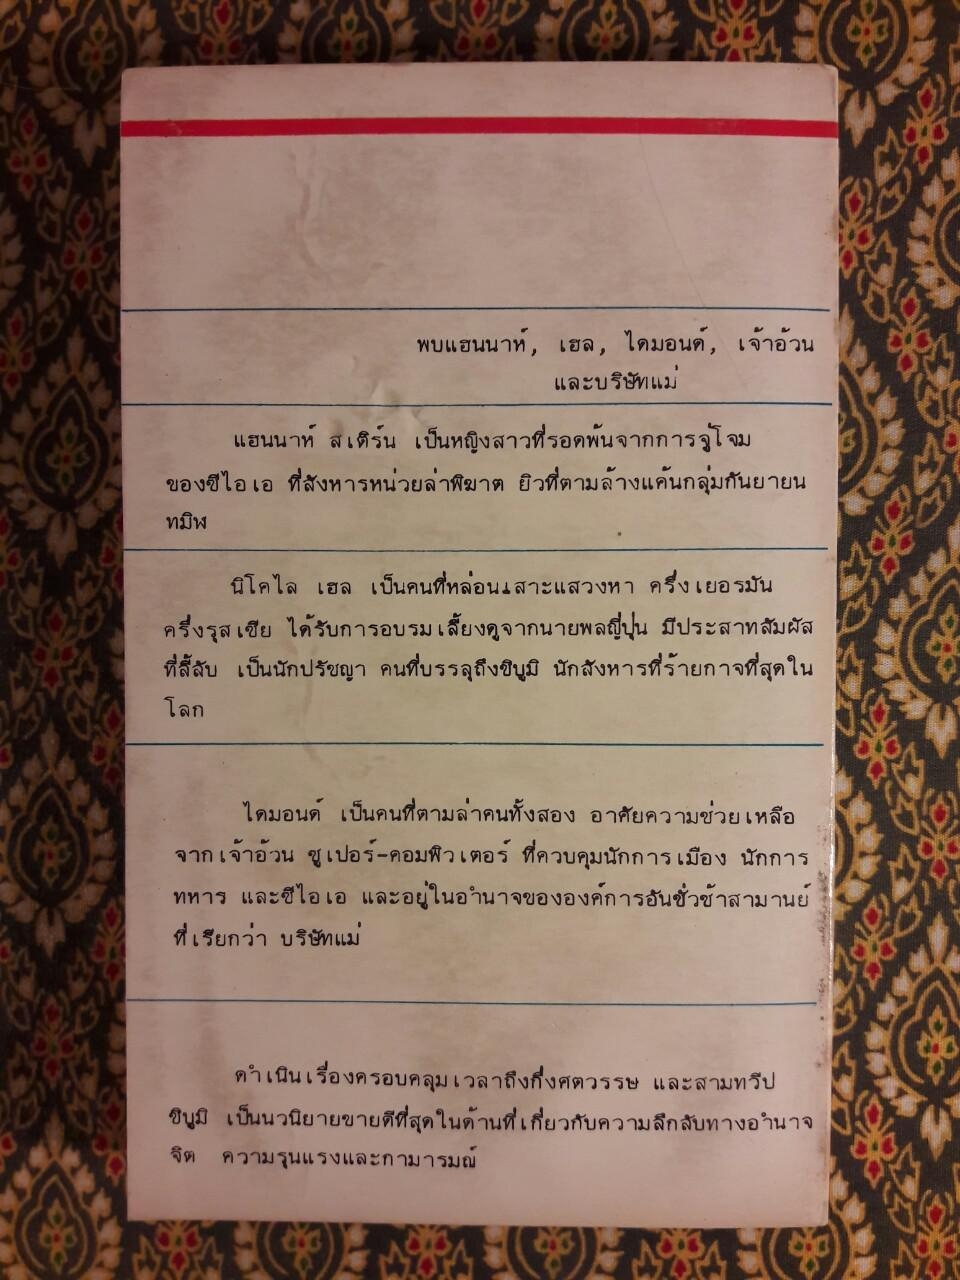 พบแฮนนาห์, เฮล, ไดมอนด์, เจ้าอ้วน
และบริษัทแม่
แฮนนาห์ สเติร์น เป็นหญิงสาวที่รอดพ้นจากการจู่โจม
ของซีไอเอ ที่สังหารหน่วยล่าพิฆาต ยิวที่ตามล้างแค้นกลุ่มกันยายน
ทมิฬ
นิโคไล เฮล เป็นคนที่หล่อนเสาะแสวงหา ครึ่งเยอรมัน
ครึ่งรุสเซีย ได้รับการอบรมเลี้ยงดูจากนายพลญี่ปุ่น มีประสาทสัมผัส
ที่ลี้ลับ เป็นนักปรัชญา คนที่บรรลุถึงชิบูมิ นักสังหารที่ร้ายกาจที่สุดใน
โลก
ไดมอนด์ เป็นคนที่ตามล่าคนทั้งสอง อาศัยความช่วยเหลือ
จากเจ้าอ้วน ซูเปอร์-คอมพิวเตอร์ ที่ควบคุมนักการเมือง นักการ
ทหาร และซีไอเอ และอยู่ในอำนาจขององค์การอันชั่วช้าสามานย์
ที่เรียกว่า บริษัทแม่
ดำเนินเรื่องครอบคลุมเวลาถึงกึ่งศตวรรษ และสามทวีป
ชิบูมิ เป็นนวนิยายขายดีที่สุดในด้านที่เกี่ยวกับความลึกลับทางอำนาจ
จิต ความรุนแรงและกามารมณ์